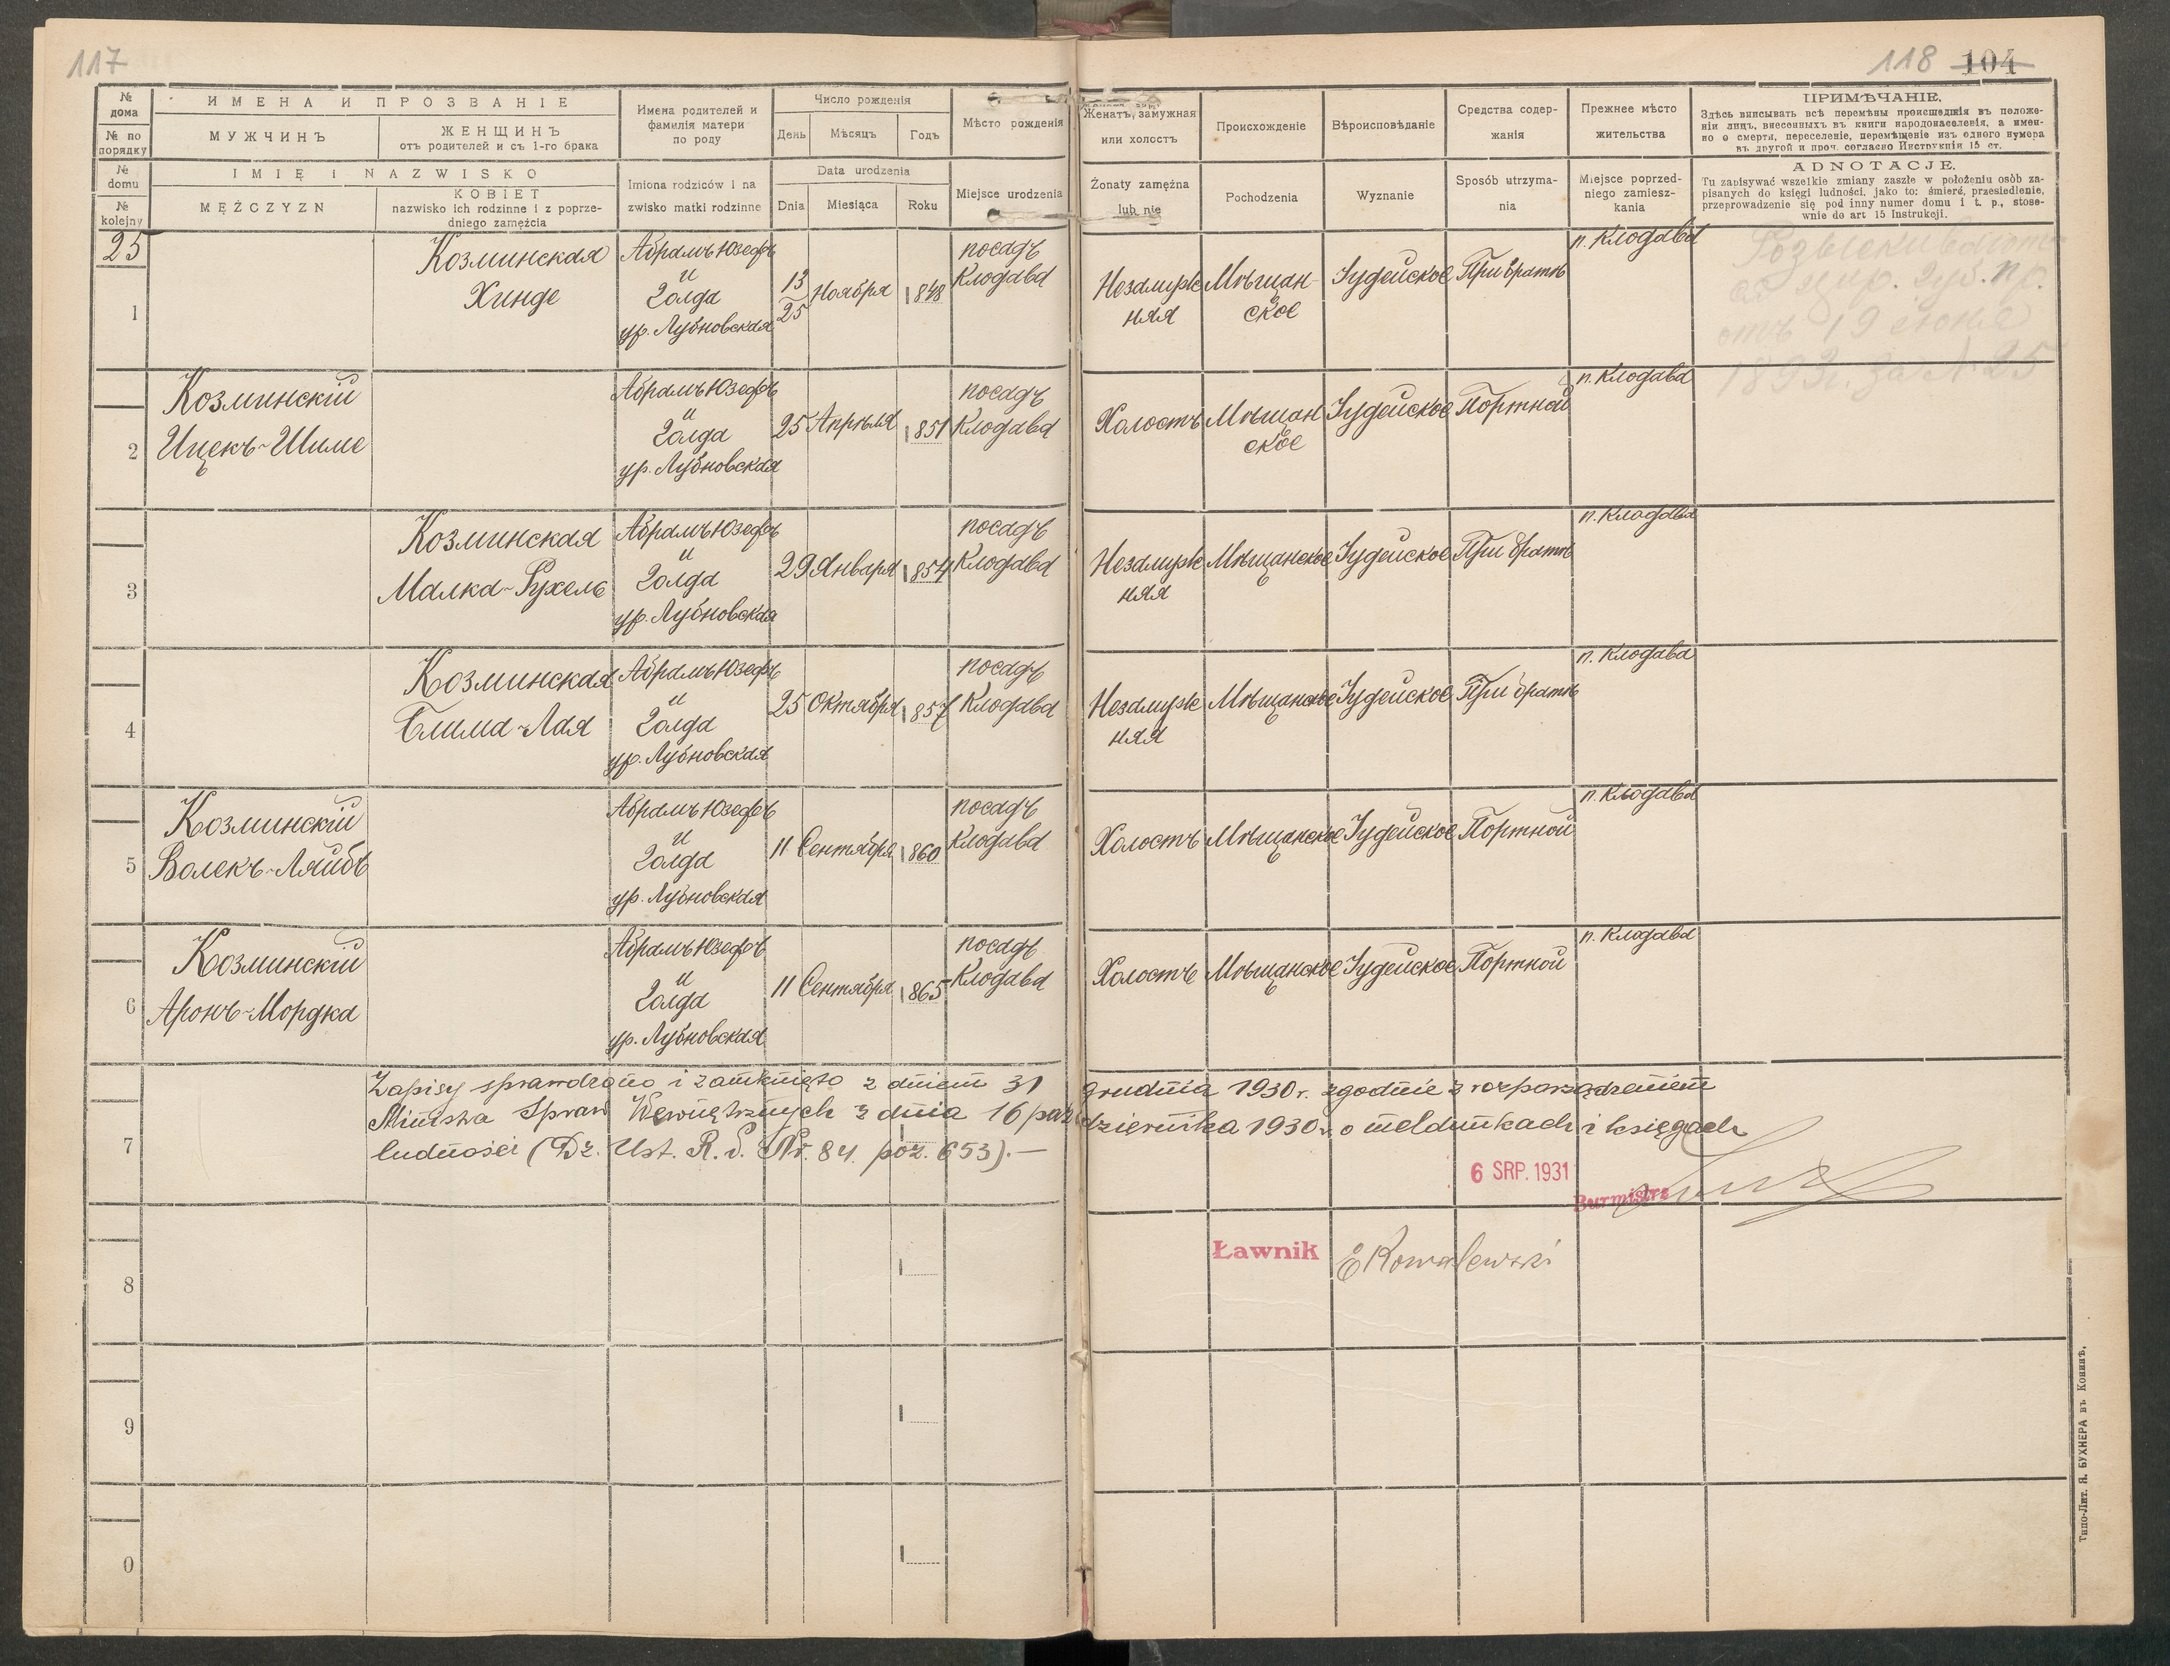 117
118 104
№ дома
№ по порядку
ИМЕНА И ПРОЗВАНІЕ
МУЖЧИНЪ
ЖЕНЩИНЪ
отъ родителей и съ 1-го брака
Имена родителей и
фамилія матери
по роду
Число рожденія
День Мѣсяцъ Годъ
Мѣсто рожденія
Женатъ, замужная
или холостъ
Происхожденіе
Вѣроисповѣданіе
Средства содер-
жанія
Прежнее мѣсто
жительства
ПРИМѢЧАНІЕ.
Здѣсь вписывать всѣ перемѣны происшедшія въ положе-
ніи лицъ, внесенныхъ въ книги народонаселенія, а имен-
но о смерти, переселеніе, перемѣщеніе изъ одного нумера
въ другой и проч. согласно Инструкціи 15 ст.
№ domu
№ kolejny
IMIĘ I NAZWISKO
MĘŻCZYZN
KOBIET
nazwisko ich rodzinne i z poprze-
dniego zamężcia
Imiona rodziców i na
zwisko matki rodzinne
Data urodzenia
Dnia Miesiąca Roku
Miejsce urodzenia
Żonaty zamężna
lub nie
Pochodzenia
Wyznanie
Sposób utrzyma-
nia
Miejsce poprzed-
niego zamiesz-
kania
ADNOTACJE.
Tu zapisywać wszelkie zmiany zaszłe w położeniu osób za-
pisanych do księgi ludności, jako to: śmierć, przesiedlenie,
przeprowadzenie się pod inny numer domu i t. p., stose-
wnie do art 15 Instrukcji.
25
1
Козминская
Хинде
Абрамъ Юзефъ
и
Голда
ур. Лубновская
13/25 Ноября 1848
посадъ
Клодава
Незамуж
няя
Мѣщан-
ское
Іудейское
При братѣ
п. Клодава
Розыскивают
отъ 19 июня
1893 г. за № 25
2
Козминскій
Ицекъ-Шиме
Абрамъ Юзефъ
и
Голда
ур. Лубновская
25 Апрѣля 1851
посадъ
Клодава
Холостъ
Мѣщан
ское
Іудейское
Портной
п. Клодава
3
Козминская
Малка-Рухель
Абрамъ Юзефъ
и
Голда
ур. Лубновская
29 Января 1854
посадъ
Клодава
Незамуж
няя
Мѣщанское
Іудейское
При братѣ
п. Клодава
4
Козминская
Блима-Лая
Абрамъ Юзефъ
и
Голда
ур. Лубновская
25 Октября 1857
посадъ
Клодава
Незамуж
няя
Мѣщанское
Іудейское
При братѣ
п. Клодава
5
Козминскій
Волекъ-Ляйбъ
Абрамъ Юзефъ
и
Голда
ур. Лубновская
11 Сентября 1860
посадъ
Клодава
Холостъ
Мѣщанское
Іудейское
Портной
п. Клодава
6
Козминскій
Аронъ-Мордка
Абрамъ Юзефъ
и
Голда
ур. Лубновская
11 Сентября 1865
посадъ
Клодава
Холостъ
Мѣщанское
Іудейское
Портной
п. Клодава
7
Zapisy sprawdzono i zamknięto z dniem 31 grudnia 1930 r. zgodnie z rozporządzeniem
Ministra Spraw Wewnętrznych z dnia 16 października 1930 r. o meldunkach i księgach
ludności (Dz. Ust. R. P. Nr. 84 poz. 653).—
6 SRP. 1931
Burmistrz
8
Ławnik EKowalewski
9
0
Типо-Лит. Я. БУХНЕРА въ Конинѣ.